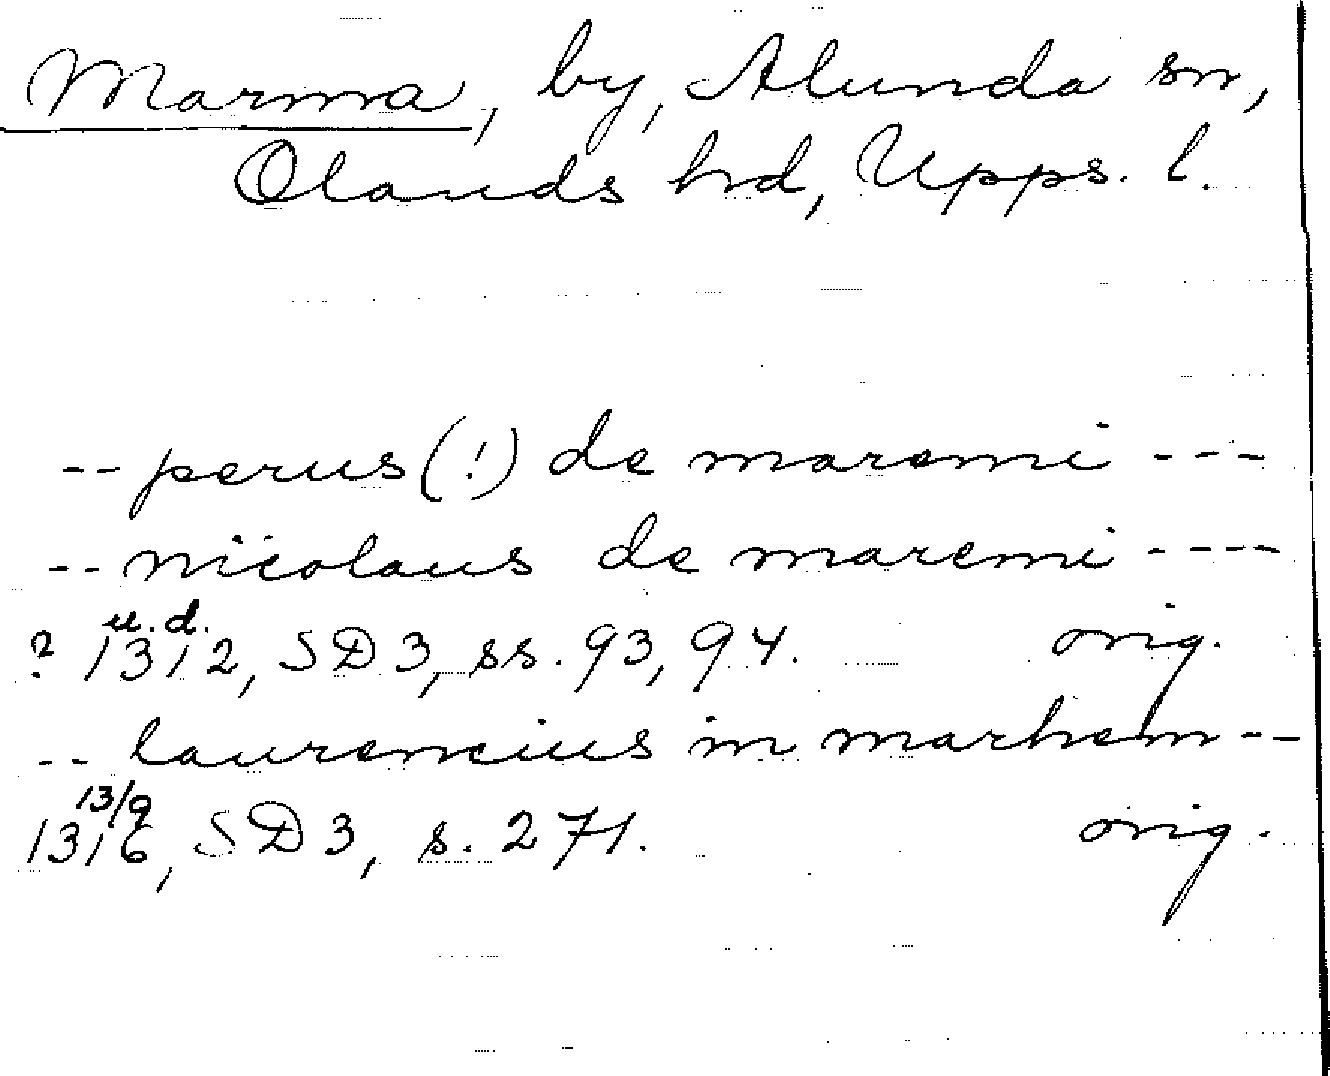 Marma, by, Alunda sn,
Olands hd, Upps. l.
-- perus (!) de maremi ---
-- nicolaus de maremi ----
u.d.
? 1312, SD 3, ss. 93, 94. orig.
-- laurencius in marhem --
13/9
1316, SD 3, s. 271. orig.